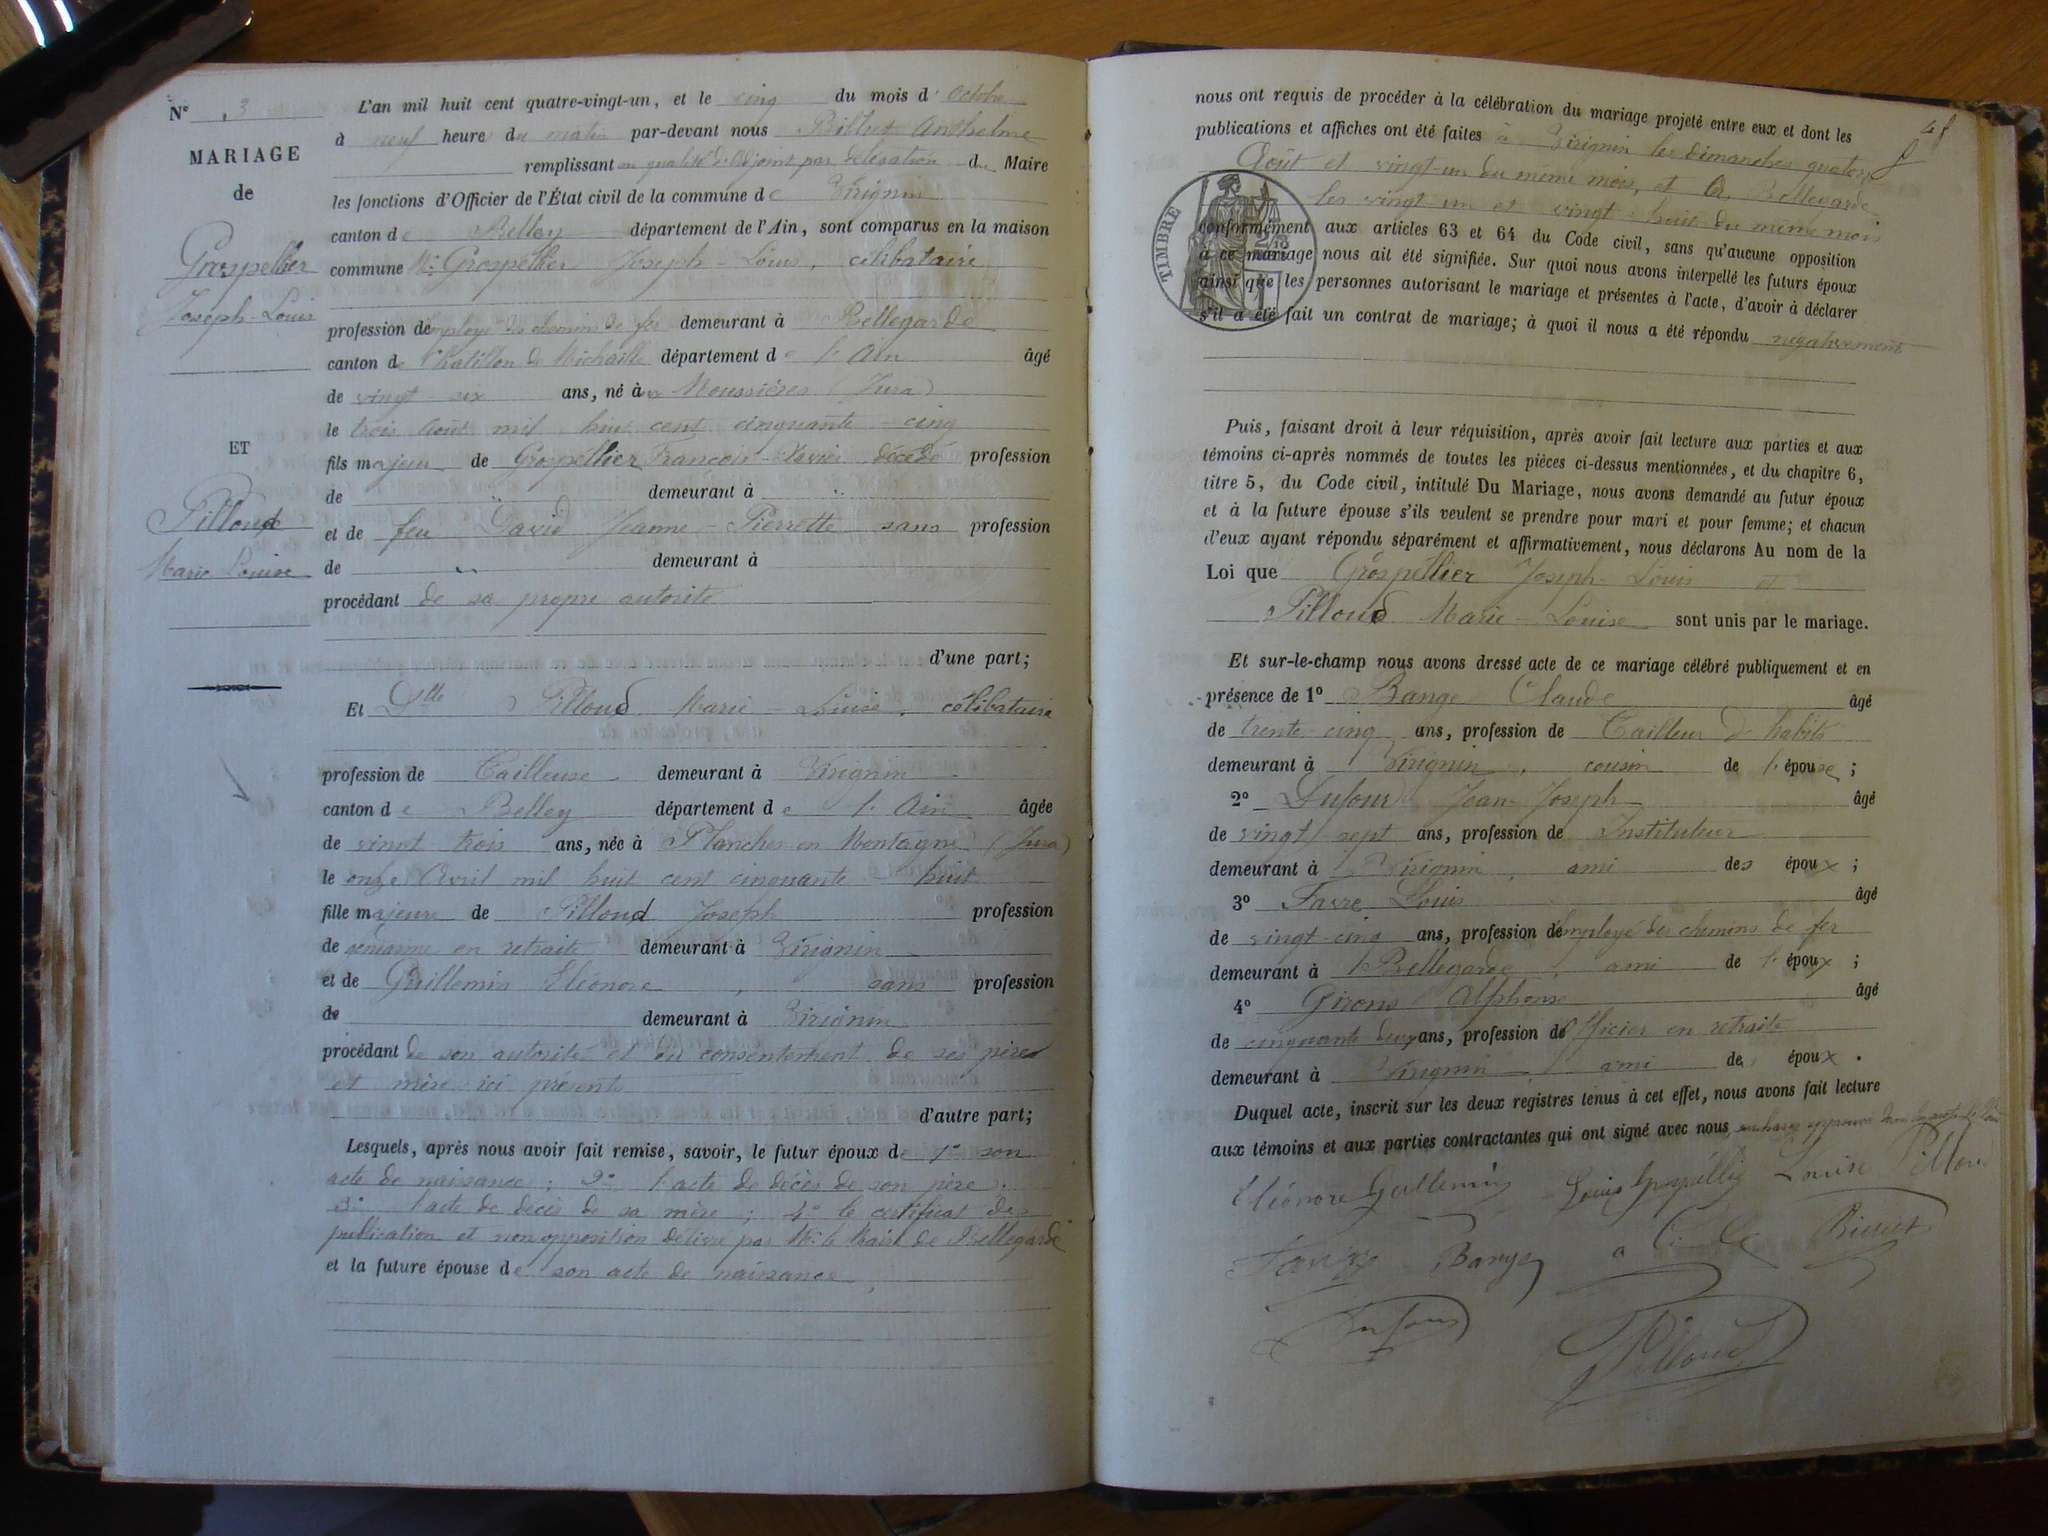 Nº 3
MARIAGE
de
Grospellier
Joseph-Louis
ET
Pilloud
Marie Louise
L'an mil huit cent quatre-vingt-un, et le cinq du mois d'Octobre
à neuf heures du matin par-devant nous Anthelme
remplissant en qualité d'Adjoint par délégation du Maire
les fonctions d'Officier de l'État civil de la commune de Virignin
canton de Belley département de l'Ain, sont comparus en la maison
commune Mr Grospellier Joseph-Louis, célibataire
profession de employé des chemins de fer demeurant à Bellegarde
canton de Chatillon de Michaille département de l'Ain âgé
de vingt-six ans, né aux Moussières (Jura)
le trois Août mil huit cent cinquante-cinq
fils majeur de Grospellier François-Xavier décédé profession
de demeurant à
et de feu David Jeanne-Pierrette sans profession
de demeurant à
procédant de sa propre autorité
d'une part;
Et Dlle Pilloud Marie-Louise, célibataire
profession de Tailleuse demeurant à Virignin
canton de Belley département de l'Ain âgée
de vingt trois ans, née à Planches en Montagne (Jura)
le onze Avril mil huit cent cinquante-huit
fille majeure de Pilloud Joseph profession
de gendarme en retraite demeurant à Virignin
et de Guillemin Eléonore, sans profession
de demeurant à Virignin
procédant de son autorité et du consentement de ses père
et mère ici présents
d'autre part;
Lesquels, après nous avoir fait remise, savoir, le futur époux de 1º son
acte de naissance; 2º l'acte de décès de son père;
3º l'acte de décès de sa mère; 4º le certificat de
publication et non opposition délivré par Mr le Maire de Bellegarde
et la future épouse de son acte de naissance
48
nous ont requis de procéder à la célébration du mariage projeté entre eux et dont les
publications et affiches ont été faites à Virignin les dimanches quatorze
Août et vingt-un du même mois, et à Bellegarde
les vingt-un et vingt-huit du même mois
TIMBRE
conformément aux articles 63 et 64 du Code civil, sans qu'aucune opposition
à ce mariage nous ait été signifiée. Sur quoi nous avons interpellé les futurs époux
ainsi que les personnes autorisant le mariage et présentes à l'acte, d'avoir à déclarer
s'il a été fait un contrat de mariage; à quoi il nous a été répondu négativement
Puis, faisant droit à leur réquisition, après avoir fait lecture aux parties et aux
témoins ci-après nommés de toutes les pièces ci-dessus mentionnées, et du chapitre 6,
titre 5, du Code civil, intitulé Du Mariage, nous avons demandé au futur époux
et à la future épouse s'ils veulent se prendre pour mari et pour femme; et chacun
d'eux ayant répondu séparément et affirmativement, nous déclarons Au nom de la
Loi que Grospellier Joseph-Louis et
Pilloud Marie-Louise sont unis par le mariage.
Et sur-le-champ nous avons dressé acte de ce mariage célébré publiquement et en
présence de 1º Bange Claude âgé
de trente-cinq ans, profession de Tailleur d'habits
demeurant à Virignin, cousin de l'épouse;
2º Dufour Jean-Joseph âgé
de vingt-sept ans, profession de Instituteur
demeurant à Virignin, ami des époux;
3º Favre Louis âgé
de vingt-cinq ans, profession d'employé des chemins de fer
demeurant à Bellegarde, ami de l'époux;
4º Alphonse âgé
de cinquante deux ans, profession d'Officier en retraite
demeurant à Virignin, ami des époux.
Duquel acte, inscrit sur les deux registres tenus à cet effet, nous avons fait lecture
aux témoins et aux parties contractantes qui ont signé avec nous
Eléonore Guillemin Louis Grospellier Louise Pilloud
Bange
Dufour Pilloud